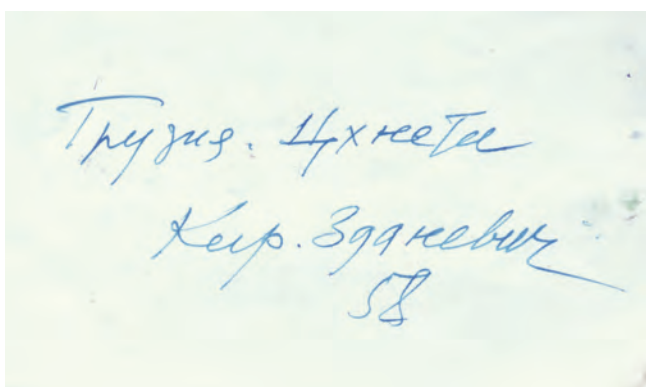 Грузия. Цхнети
Кир. Зданевич
58